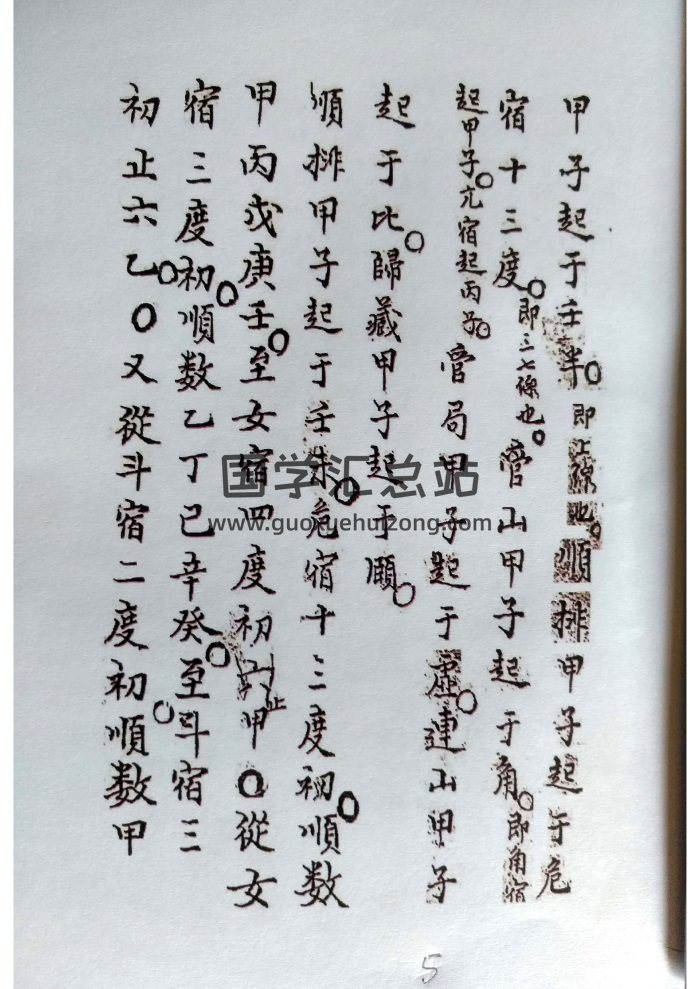 甲子起于壬半。即江線也。順排甲子起于危
宿十三度。即三七線也。管山甲子起于角。即角宿
起甲子。亢宿起丙子。管局甲子起于虛。連山甲子
起于比。歸藏甲子起于頤。
順排甲子起于壬末。危宿十三度初。順数
甲丙戊庚壬。至女宿四度初六甲止。從女
宿三度初。順数乙丁己辛癸。至斗宿三
初止六乙。〇又從斗宿二度初。順数甲
国学汇总站
www.guoxuehuizong.com
5